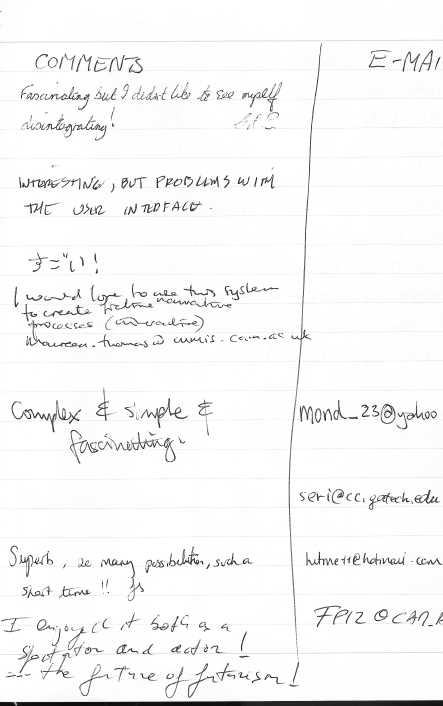 COMMENTS
E-MAI
Fascinating but I didn't like to see myself
disintegrating!
INTERESTING, BUT PROBLEMS WITH
THE USER INTERFACE.
すごい!
I would love to use this system
to create narrative
processes (interactive)
maureen.thomas@ .cam.ac.uk
Complex & simple &
mond_23@yahoo
fascinatting.
seri@cc.gatech.edu
Superb, so many possibilities, such a
@hotmail.com
short time!!
I enjoyed it both as a
FP12@CAM.A
spectator and actor!
--- the future of futurism!